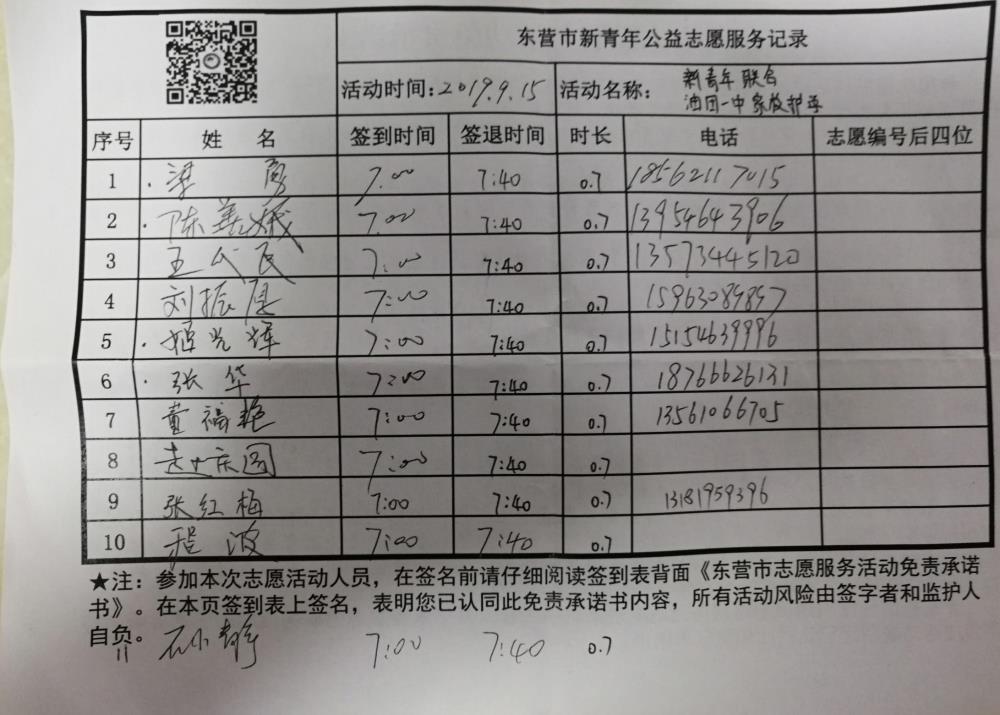 东营市新青年公益志愿服务记录
活动时间:2019.9.15 活动名称: 新青年联合
油田一中家教护学
序号 姓 名 签到时间 签退时间 时长 电话 志愿编号后四位
1 梁 勇 7:00 7:40 0.7 18562117015
2 陈美娥 7:00 7:40 0.7 13954643906
3 王代民 7:00 7:40 0.7 13573445120
4 刘振 7:00 7:40 0.7 15963089897
5 姬光辉 7:00 7:40 0.7 15154639996
6 张华 7:00 7:40 0.7 18766626131
7 董福艳 7:00 7:40 0.7 13561066705
8 庆圆 7:00 7:40 0.7
9 张红梅 7:00 7:40 0.7 13181959396
10 程波 7:00 7:40 0.7
★注：参加本次志愿活动人员，在签名前请仔细阅读签到表背面《东营市志愿服务活动免责承诺
书》。在本页签到表上签名，表明您已认同此免责承诺书内容，所有活动风险由签字者和监护人
自负。
11 石小静 7:00 7:40 0.7